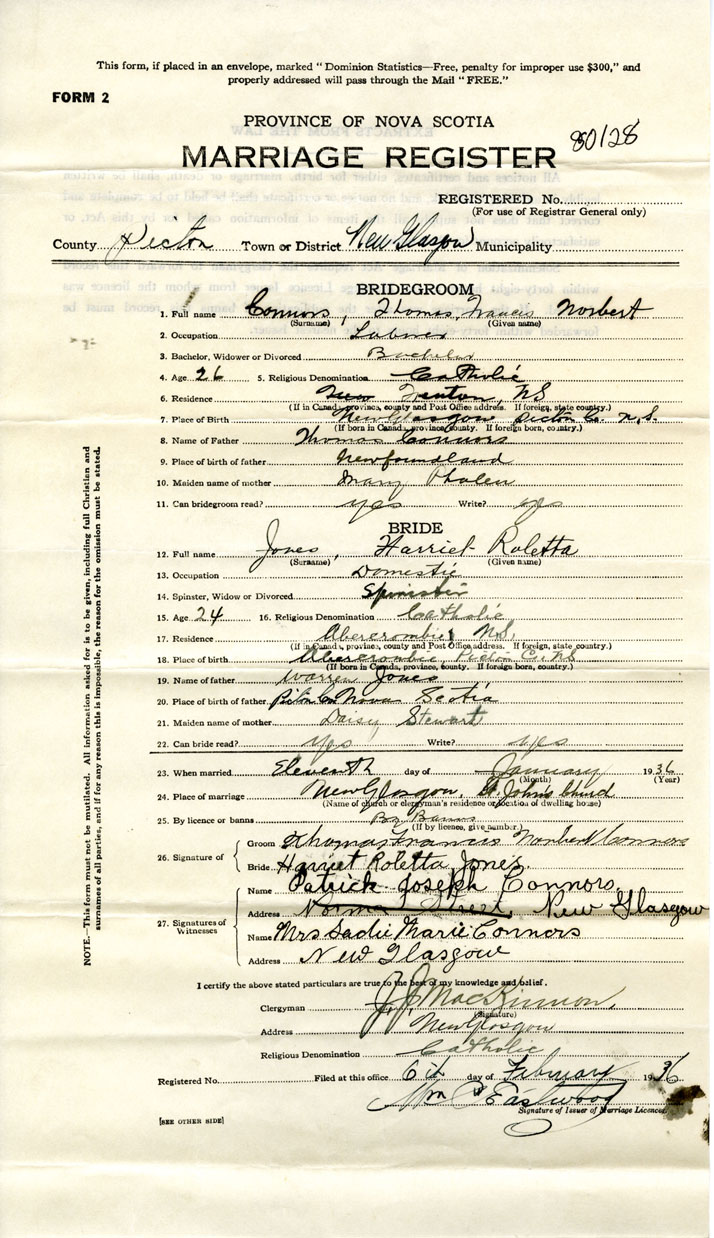 This form, if placed in an envelope, marked "Dominion Statistics—Free, penalty for improper use $300," and
properly addressed will pass through the Mail "FREE."
FORM 2
PROVINCE OF NOVA SCOTIA
80128
MARRIAGE REGISTER
REGISTERED No.
(For use of Registrar General only)
County Pictou Town or District New Glasgow Municipality
BRIDEGROOM
1. Full name Connors, Thomas Francis Norbert
(Surname) (Given name)
2. Occupation Labourer
3. Bachelor, Widower or Divorced Bachelor
4. Age 26 5. Religious Denomination Catholic
6. Residence Trenton, NS
(If in Canada, province, county and Post Office address. If foreign, state country.)
7. Place of Birth New Glasgow Pictou Co. N.S.
(If born in Canada, province, county. If foreign born, country.)
8. Name of Father Thomas Connors
9. Place of birth of father Newfoundland
10. Maiden name of mother Mary Phalen
11. Can bridegroom read? yes Write? yes
BRIDE
12. Full name Jones, Harriet Roletta
(Surname) (Given name)
13. Occupation Domestic
14. Spinster, Widow or Divorced Spinster
15. Age 24 16. Religious Denomination Catholic
17. Residence Abercrombie, N.S.
(If in Canada, province, county and Post Office address. If foreign, state country.)
18. Place of birth Abercrombie Pictou Co NS
(If born in Canada, province, county. If foreign born, country.)
19. Name of father Warren Jones
20. Place of birth of father Pictou Co Nova Scotia
21. Maiden name of mother Daisy Stewart
22. Can bride read? Yes Write? yes
23. When married Eleventh day of January 1936
(Month) (Year)
24. Place of marriage New Glasgow, St. John's Church
(Name of church or clergyman's residence or location of dwelling house)
25. By licence or banns By Banns
(If by licence, give number.)
26. Signature of
Groom Thomas Francis Norbert Connors
Bride Harriet Roletta Jones
27. Signatures of Witnesses
Name Patrick Joseph Connors
Address Norma Street, New Glasgow
Name Mrs Sadie Marie Connors
Address New Glasgow
I certify the above stated particulars are true to the best of my knowledge and belief.
Clergyman J. J. MacKinnon
(Signature)
Address New Glasgow
Religious Denomination Catholic
Registered No. Filed at this office 6th day of February 1936
Wm P Eastwood
Signature of Issuer of Marriage Licences
[SEE OTHER SIDE]
NOTE.—This form must not be mutilated. All information asked for is to be given, including full Christian and
surnames of all parties, and if for any reason this is impossible, the reason for the omission must be stated.